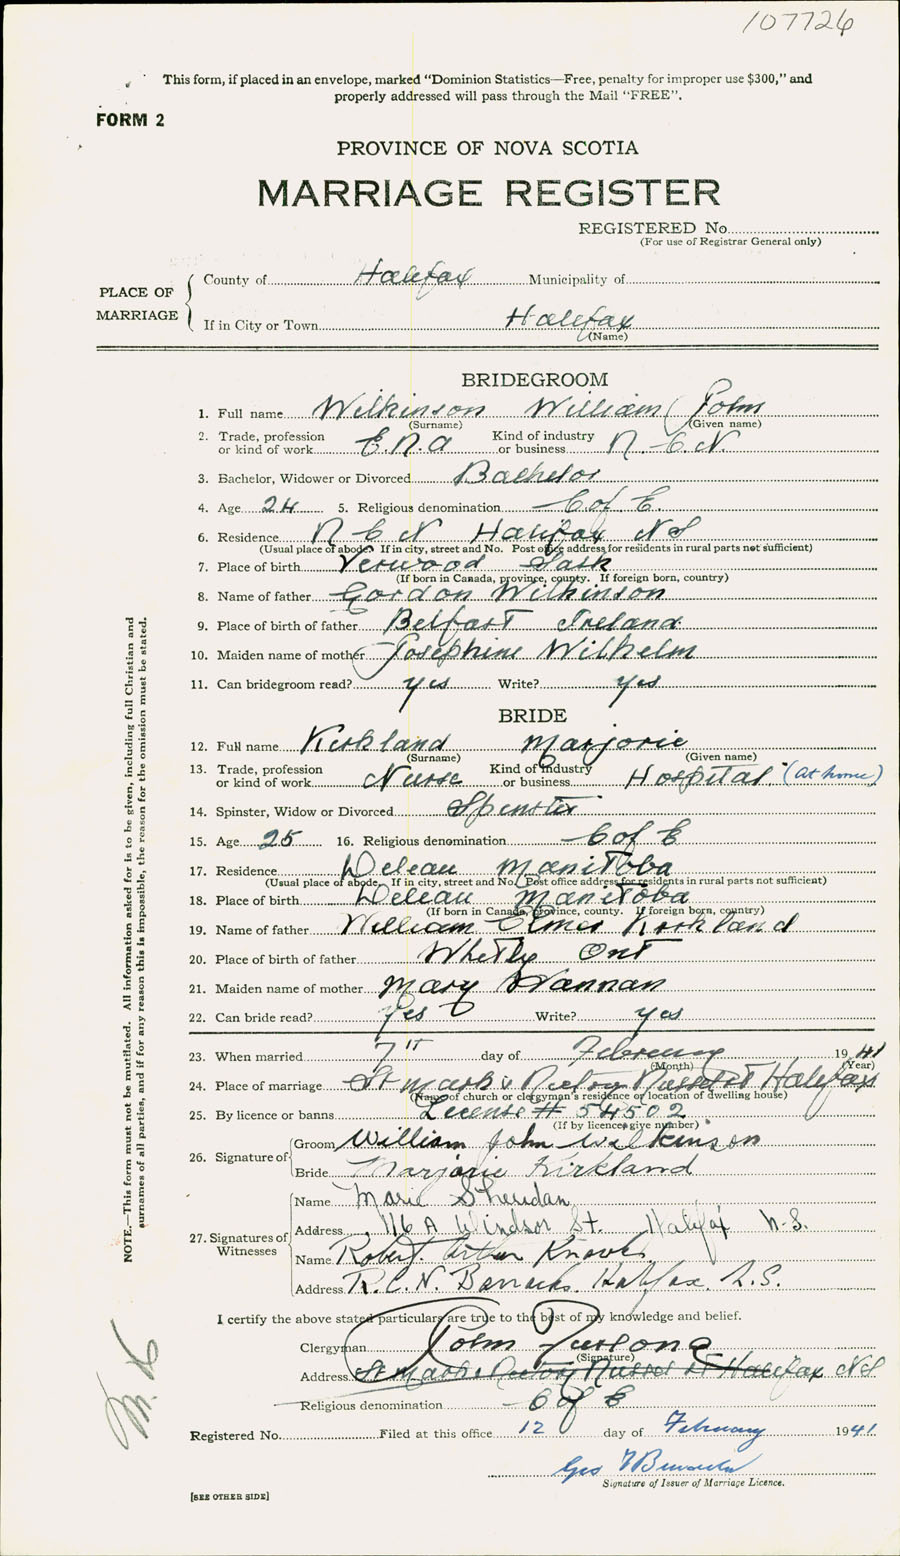 107726
This form, if placed in an envelope, marked “Dominion Statistics—Free, penalty for improper use $300,” and
properly addressed will pass through the Mail “FREE”.
FORM 2
PROVINCE OF NOVA SCOTIA
MARRIAGE REGISTER
REGISTERED No.
(For use of Registrar General only)
PLACE OF MARRIAGE
County of Halifax Municipality of
If in City or Town Halifax
(Name)
BRIDEGROOM
1. Full name Wilkinson William John
(Surname) (Given name)
2. Trade, profession or kind of work E.R.A Kind of industry or business R.C.N.
3. Bachelor, Widower or Divorced Bachelor
4. Age 24 5. Religious denomination C of E.
6. Residence R C N Halifax NS
(Usual place of abode. If in city, street and No. Post office address for residents in rural parts not sufficient)
7. Place of birth Verwood Sask
(If born in Canada, province, county. If foreign born, country)
8. Name of father Gordon Wilkinson
9. Place of birth of father Belfast Ireland
10. Maiden name of mother Josephine Wilhelm
11. Can bridegroom read? yes Write? yes
BRIDE
12. Full name Kirkland Marjorie
(Surname) (Given name)
13. Trade, profession or kind of work Nurse Kind of Industry or business Hospital (at home)
14. Spinster, Widow or Divorced Spinster
15. Age 25 16. Religious denomination C of E
17. Residence Deleau Manitoba
(Usual place of abode. If in city, street and No. Post office address for residents in rural parts not sufficient)
18. Place of birth Deleau Manitoba
(If born in Canada, province, county. If foreign born, country)
19. Name of father William Elmer Kirkland
20. Place of birth of father Whitby Ont
21. Maiden name of mother Mary Hannan
22. Can bride read? Yes Write? yes
23. When married 7th day of February 1941
(Month) (Year)
24. Place of marriage St Mark's Rectory Russell St Halifax
(Name of church or clergyman's residence or location of dwelling house)
25. By licence or banns License # 54502
(If by licence, give number)
26. Signature of
Groom William John Wilkinson
Bride Marjorie Kirkland
27. Signatures of Witnesses
Name Marie Sheridan
Address 116 A Windsor St. Halifax N.S.
Name Robert Arthur
Address R.C.N. Barracks. Halifax. N.S.
I certify the above stated particulars are true to the best of my knowledge and belief.
Clergyman John Furlong
(Signature)
Address St Mark's Rectory Russell St Halifax NS
Religious denomination C of E
Registered No. Filed at this office 12 day of February 1941
Geo
Signature of Issuer of Marriage Licence.
[SEE OTHER SIDE]
NOTE.—This form must not be mutilated. All information asked for is to be given, including full Christian and
surnames of all parties, and if for any reason this is impossible, the reason for the omission must be stated.